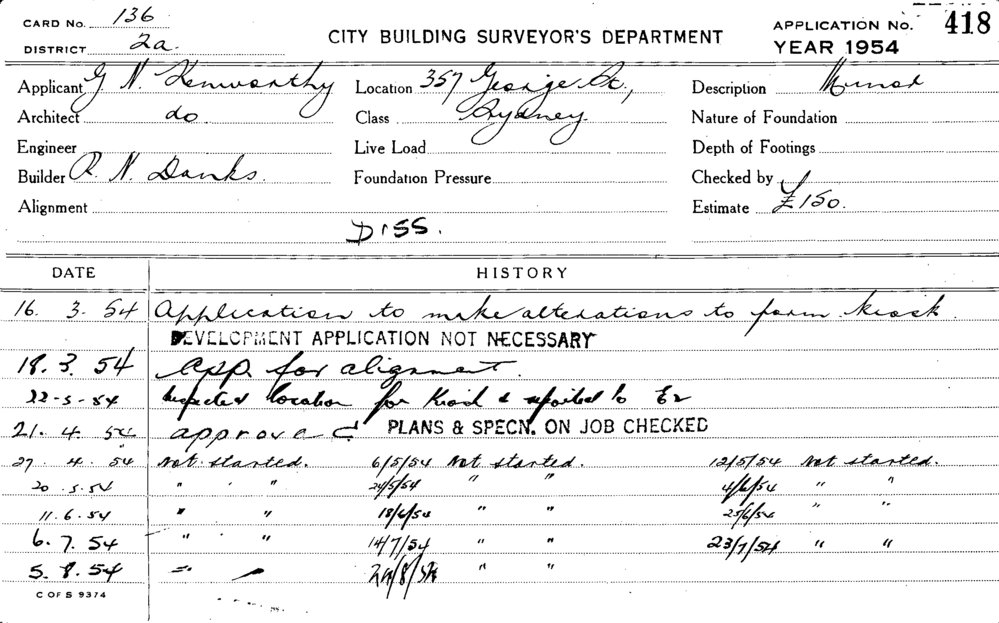 CARD No. 136
DISTRICT 2a.
CITY BUILDING SURVEYOR'S DEPARTMENT
APPLICATION No. 418
YEAR 1954
Applicant G. N. Kenworthy Location 357 George St., Description Minor
Architect do Class Sydney. Nature of Foundation
Engineer Live Load Depth of Footings
Builder R. N. Danks. Foundation Pressure Checked by
Alignment Estimate £150.
DISS.
DATE HISTORY
16. 3. 54 Application to make alterations to form kiosk.
DEVELOPMENT APPLICATION NOT NECESSARY
18. 3. 54 App. for alignment.
22-3-54 Inspected location for Kiosk & reported to
21. 4. 54 approved PLANS & SPECN. ON JOB CHECKED
27. 4. 54 Not started. 6/5/54 Not started. 12/5/54 Not started.
20.5.54 " " 24/5/54 " " 4/6/54 " "
11.6.54 " " 18/6/54 " " 25/6/54 " "
6.7.54 " " 14/7/54 " " 23/7/54 " "
5.8.54 " 24/8/54 " "
C OF S 9374